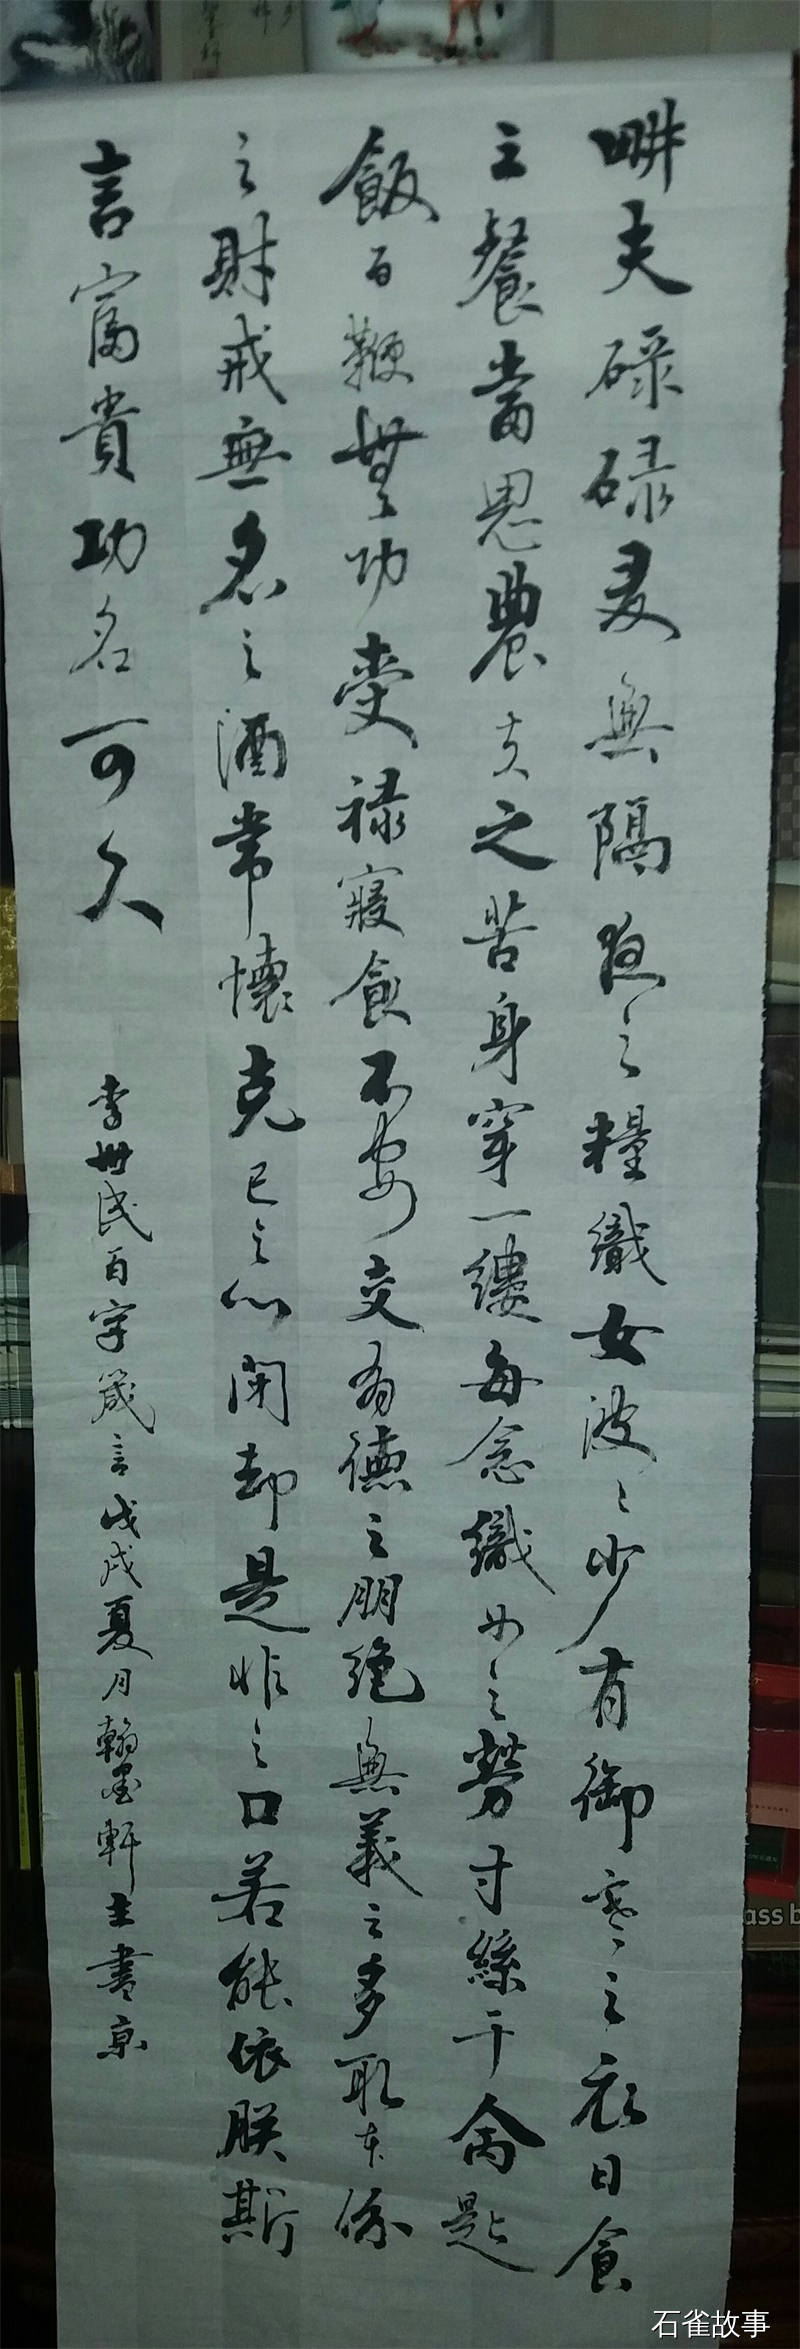 畊夫碌碌多無隔夜之糧織女波々少有御寒之衣日食
三餐當思農夫之苦身穿一縷每念織女之勞寸絲千命匙
飯百鞭無功受祿寢食不安交有德之朋絕無義之友取本份
之財戒無名之酒常懷克己之心閉却是非之口若能依朕斯
言富貴功名可久
李世民百字箴言戊戌夏月翰墨軒主書京
ass b
石雀故事